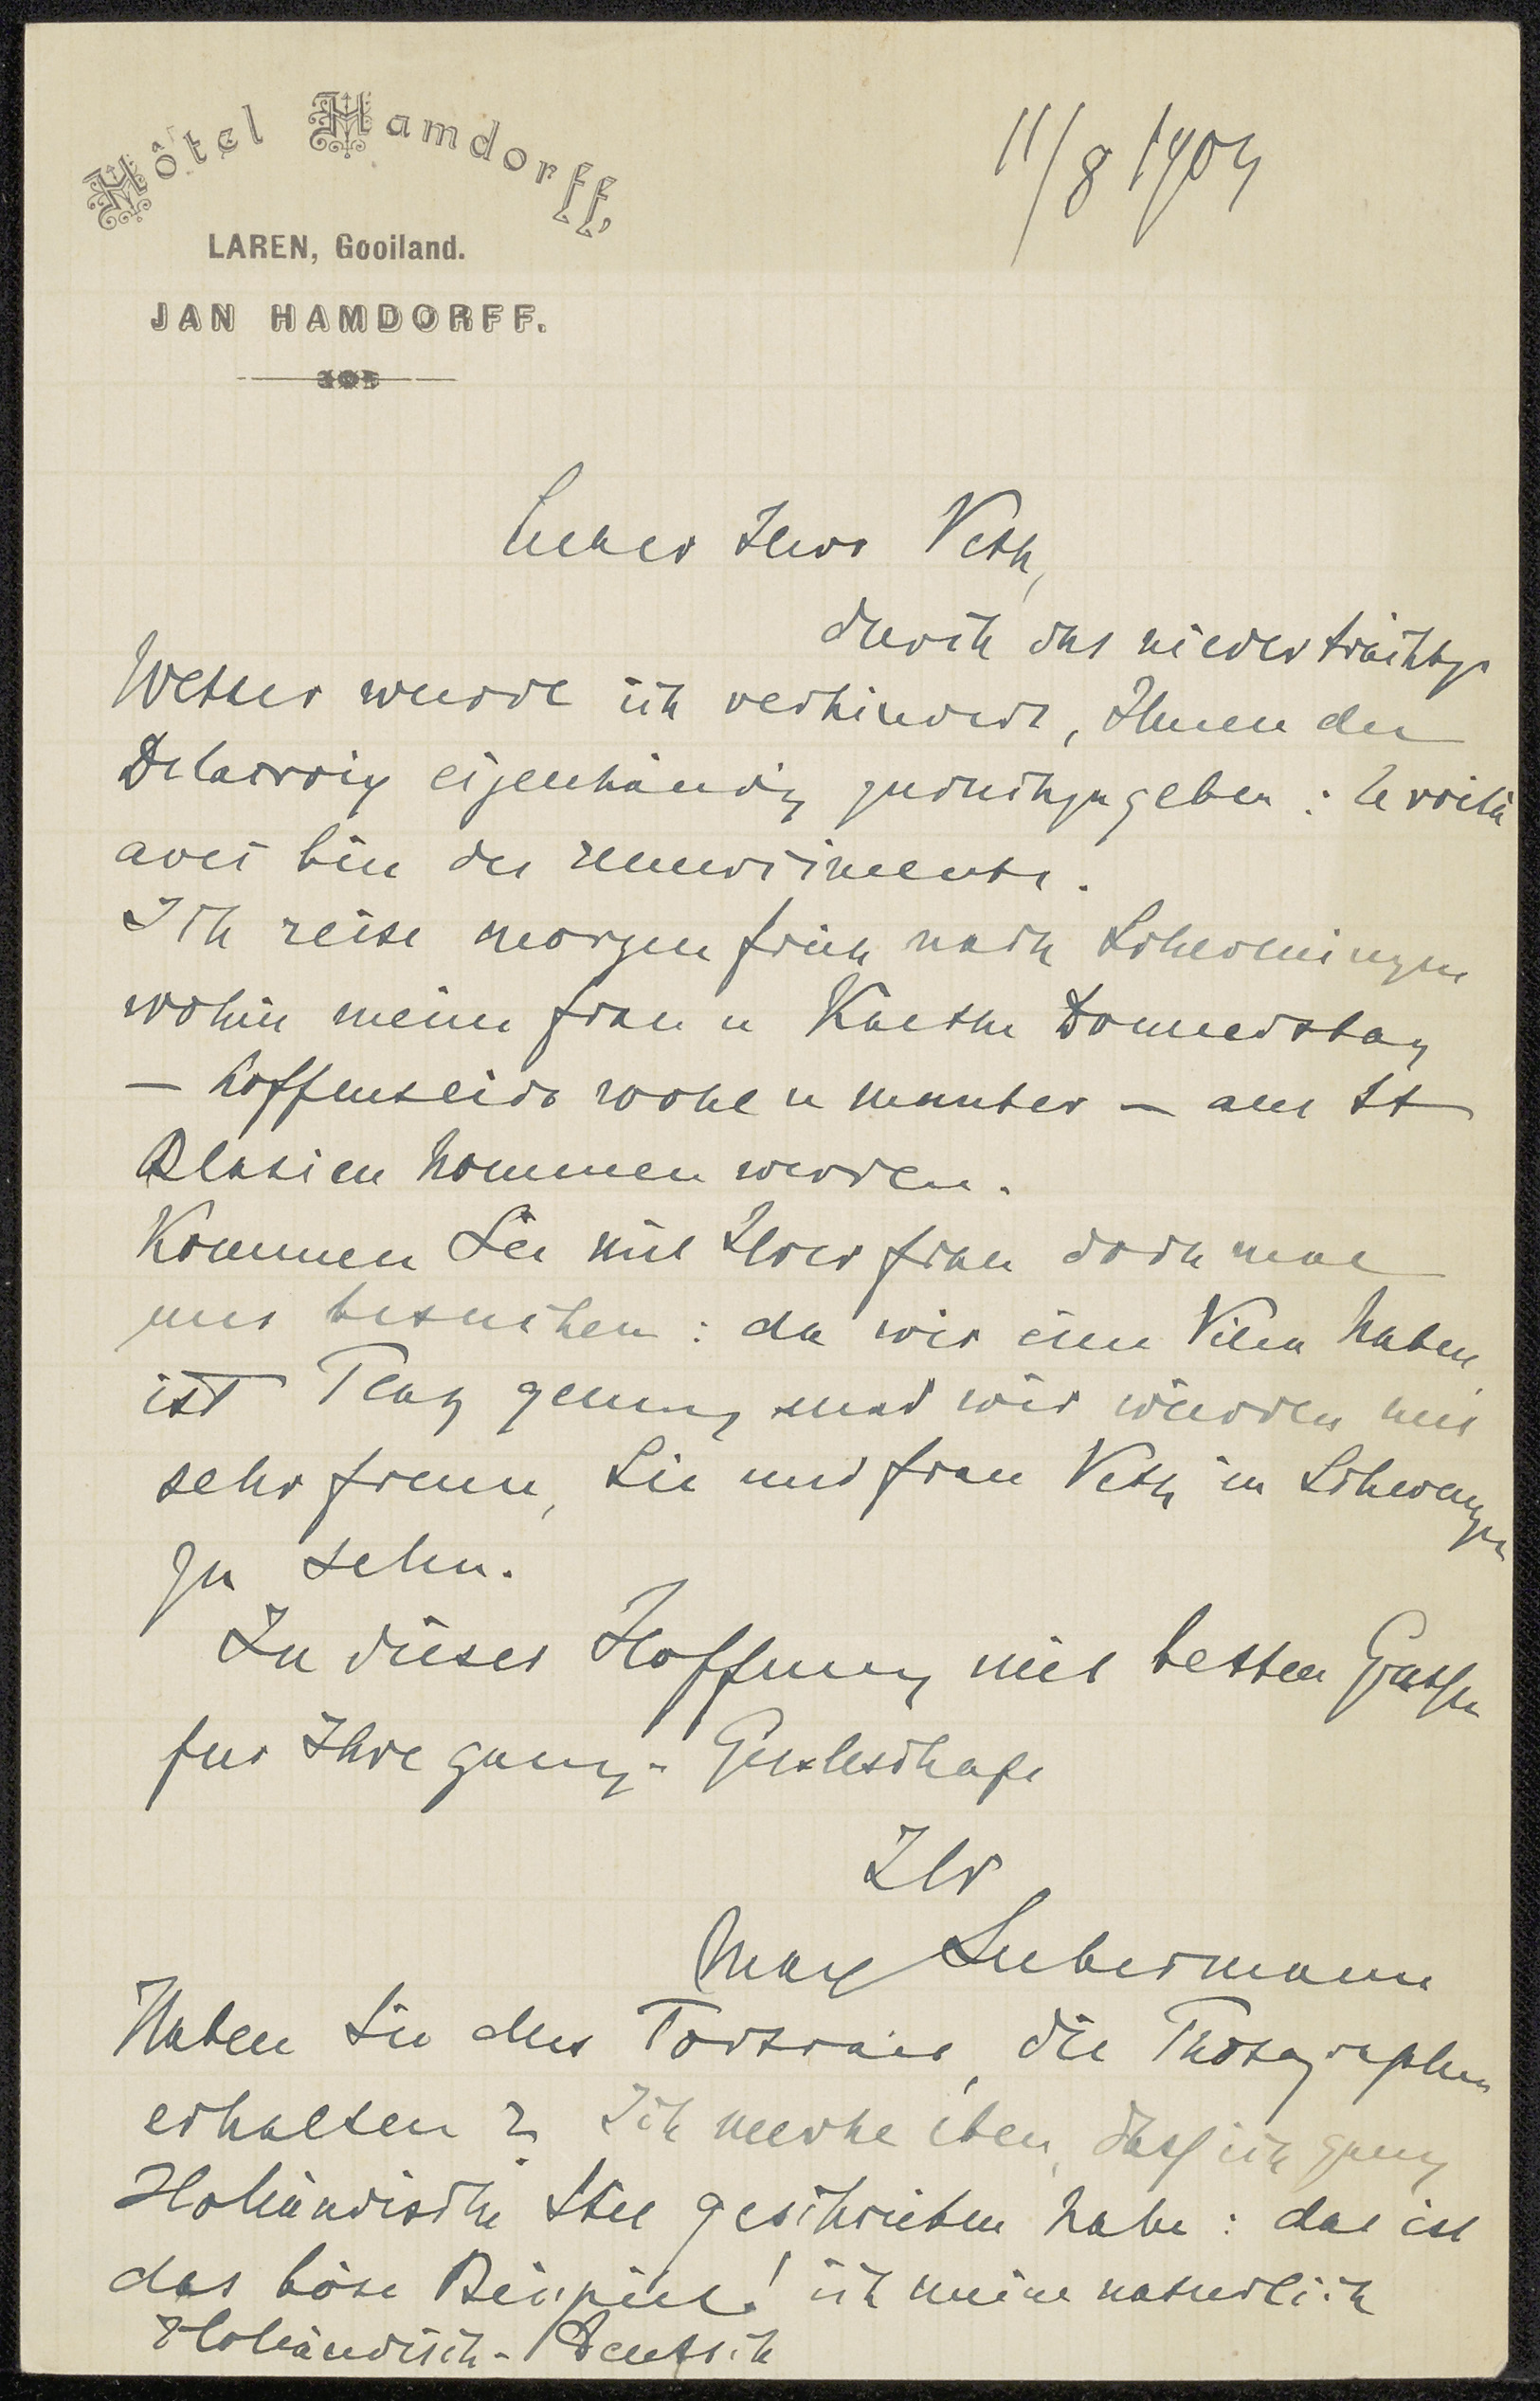 Hôtel Hamdorff,
LAREN, Gooiland.
JAN HAMDORFF.
11/8 1904
Lieber Herr Veth,
durch das niederträchtige
Wetter wurde ich verhindert, Ihnen den
Delacroix eigenhändig zurückzugeben: le voilà
avec bien des remerciments.
Ich reise morgen früh nach Scheveningen
wohin meine Frau u Kaethe Donnerstag
— hoffentlich wohl u munter — aus St
Blasien kommen werden.
Kommen Sie mit Ihrer Frau doch mal
uns besuchen: da wir eine Villa haben,
ist Platz genug und wir würden uns
sehr freuen, Sie und Frau Veth in Scheveningen
zu sehn.
In dieser Hoffnung mit besten Grüssen
für Ihre ganz-
Ihr
Max Liebermann
Haben Sie das Portrait, die Photographien
erhalten? Ich merke eben, dass ich ganz
Holländische Stil geschrieben habe: das ist
das böse Beispiel! ich meine natürlich
Holländisch-Deutsch